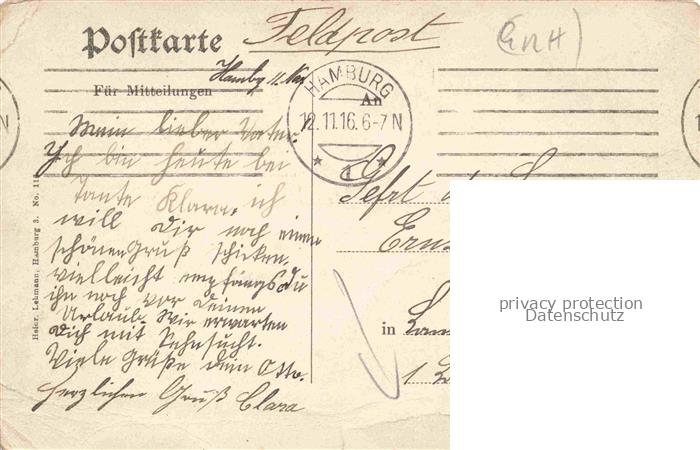 Postkarte
Feldpost
Für Mitteilungen
Hambg 11. Nov
HAMBURG
12.11.16.6-7N
1
An
Mein lieber Vater.
Ich bin heute bei
Tante Klara, ich
will Dir noch einen
schönen Gruß schicken,
vielleicht empfängst du
ihn noch vor deinem
Urlaub. Wir erwarten
Dich mit Sehnsucht.
Viele Grüße dein Otto.
Herzlichen Gruß Clara
Heinr. Lehmann, Hamburg 3. No. 11
Gefrt
in
1
privacy protection
Datenschutz